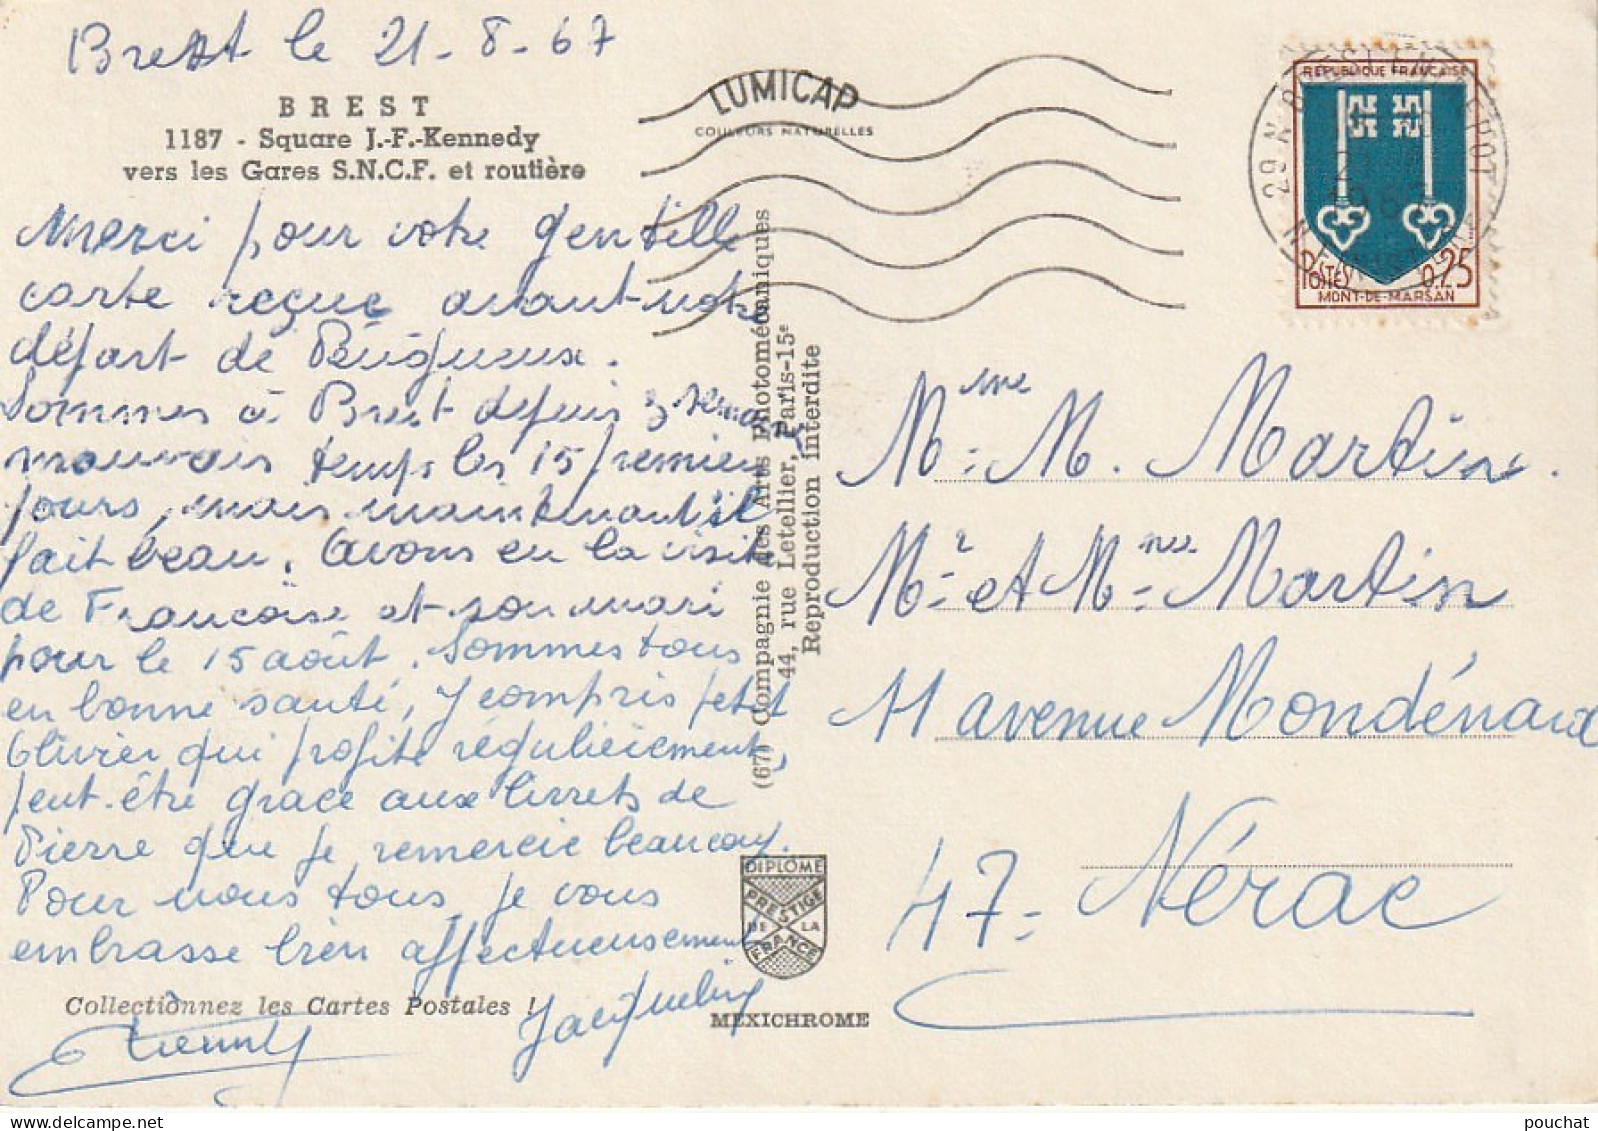 Brest le 21-8-67
BREST
1187 - Square J.-F.-Kennedy
vers les Gares S.N.C.F. et routière
Merci pour votre gentille
carte reçue avant votre
départ de Périgueux.
Sommes à Brest depuis 3 semaines
mauvais temps les 15 premiers
jours, mais maintenant il
fait beau. Avons eu la visite
de Françoise et son mari
pour le 15 août. Sommes tous
en bonne santé, y compris petit
Olivier qui profite régulièrement,
peut-être grace aux livrets de
Pierre que je remercie beaucoup.
Pour nous tous je vous
embrasse bien affectueusement
Jacqueline
Etienne
Collectionnez les Cartes Postales !
LUMICAP
COULEURS NATURELLES
(67) Compagnie des Arts Photomécaniques
44, rue Letellier, Paris-15e
Reproduction interdite
DIPLOME
PRESTIGE
DE LA
FRANCE
MEXICHROME
REPUBLIQUE FRANÇAISE
POSTES 0,25
MONT-DE-MARSAN
29 N
Mme M. Martin.
Mr et Mme Martin
11 avenue Mondénard
47 - Nérac
pouchat